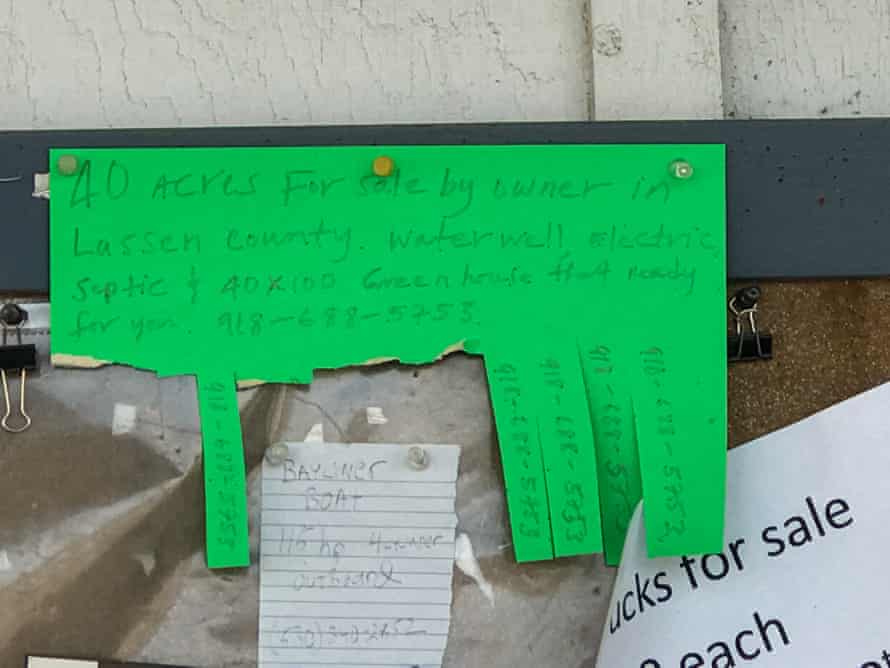 40 Acres For sale by owner in
Lassen county. Water well, Electric,
Septic & 40x100 Greenhouse that ready
for you. 918-688-5753
918-688-5753
918-688-5753
918-688-5753
918-688-575
918-688-5753
BAYLINER
BOAT
115 hp
outboard
ucks for sale
each